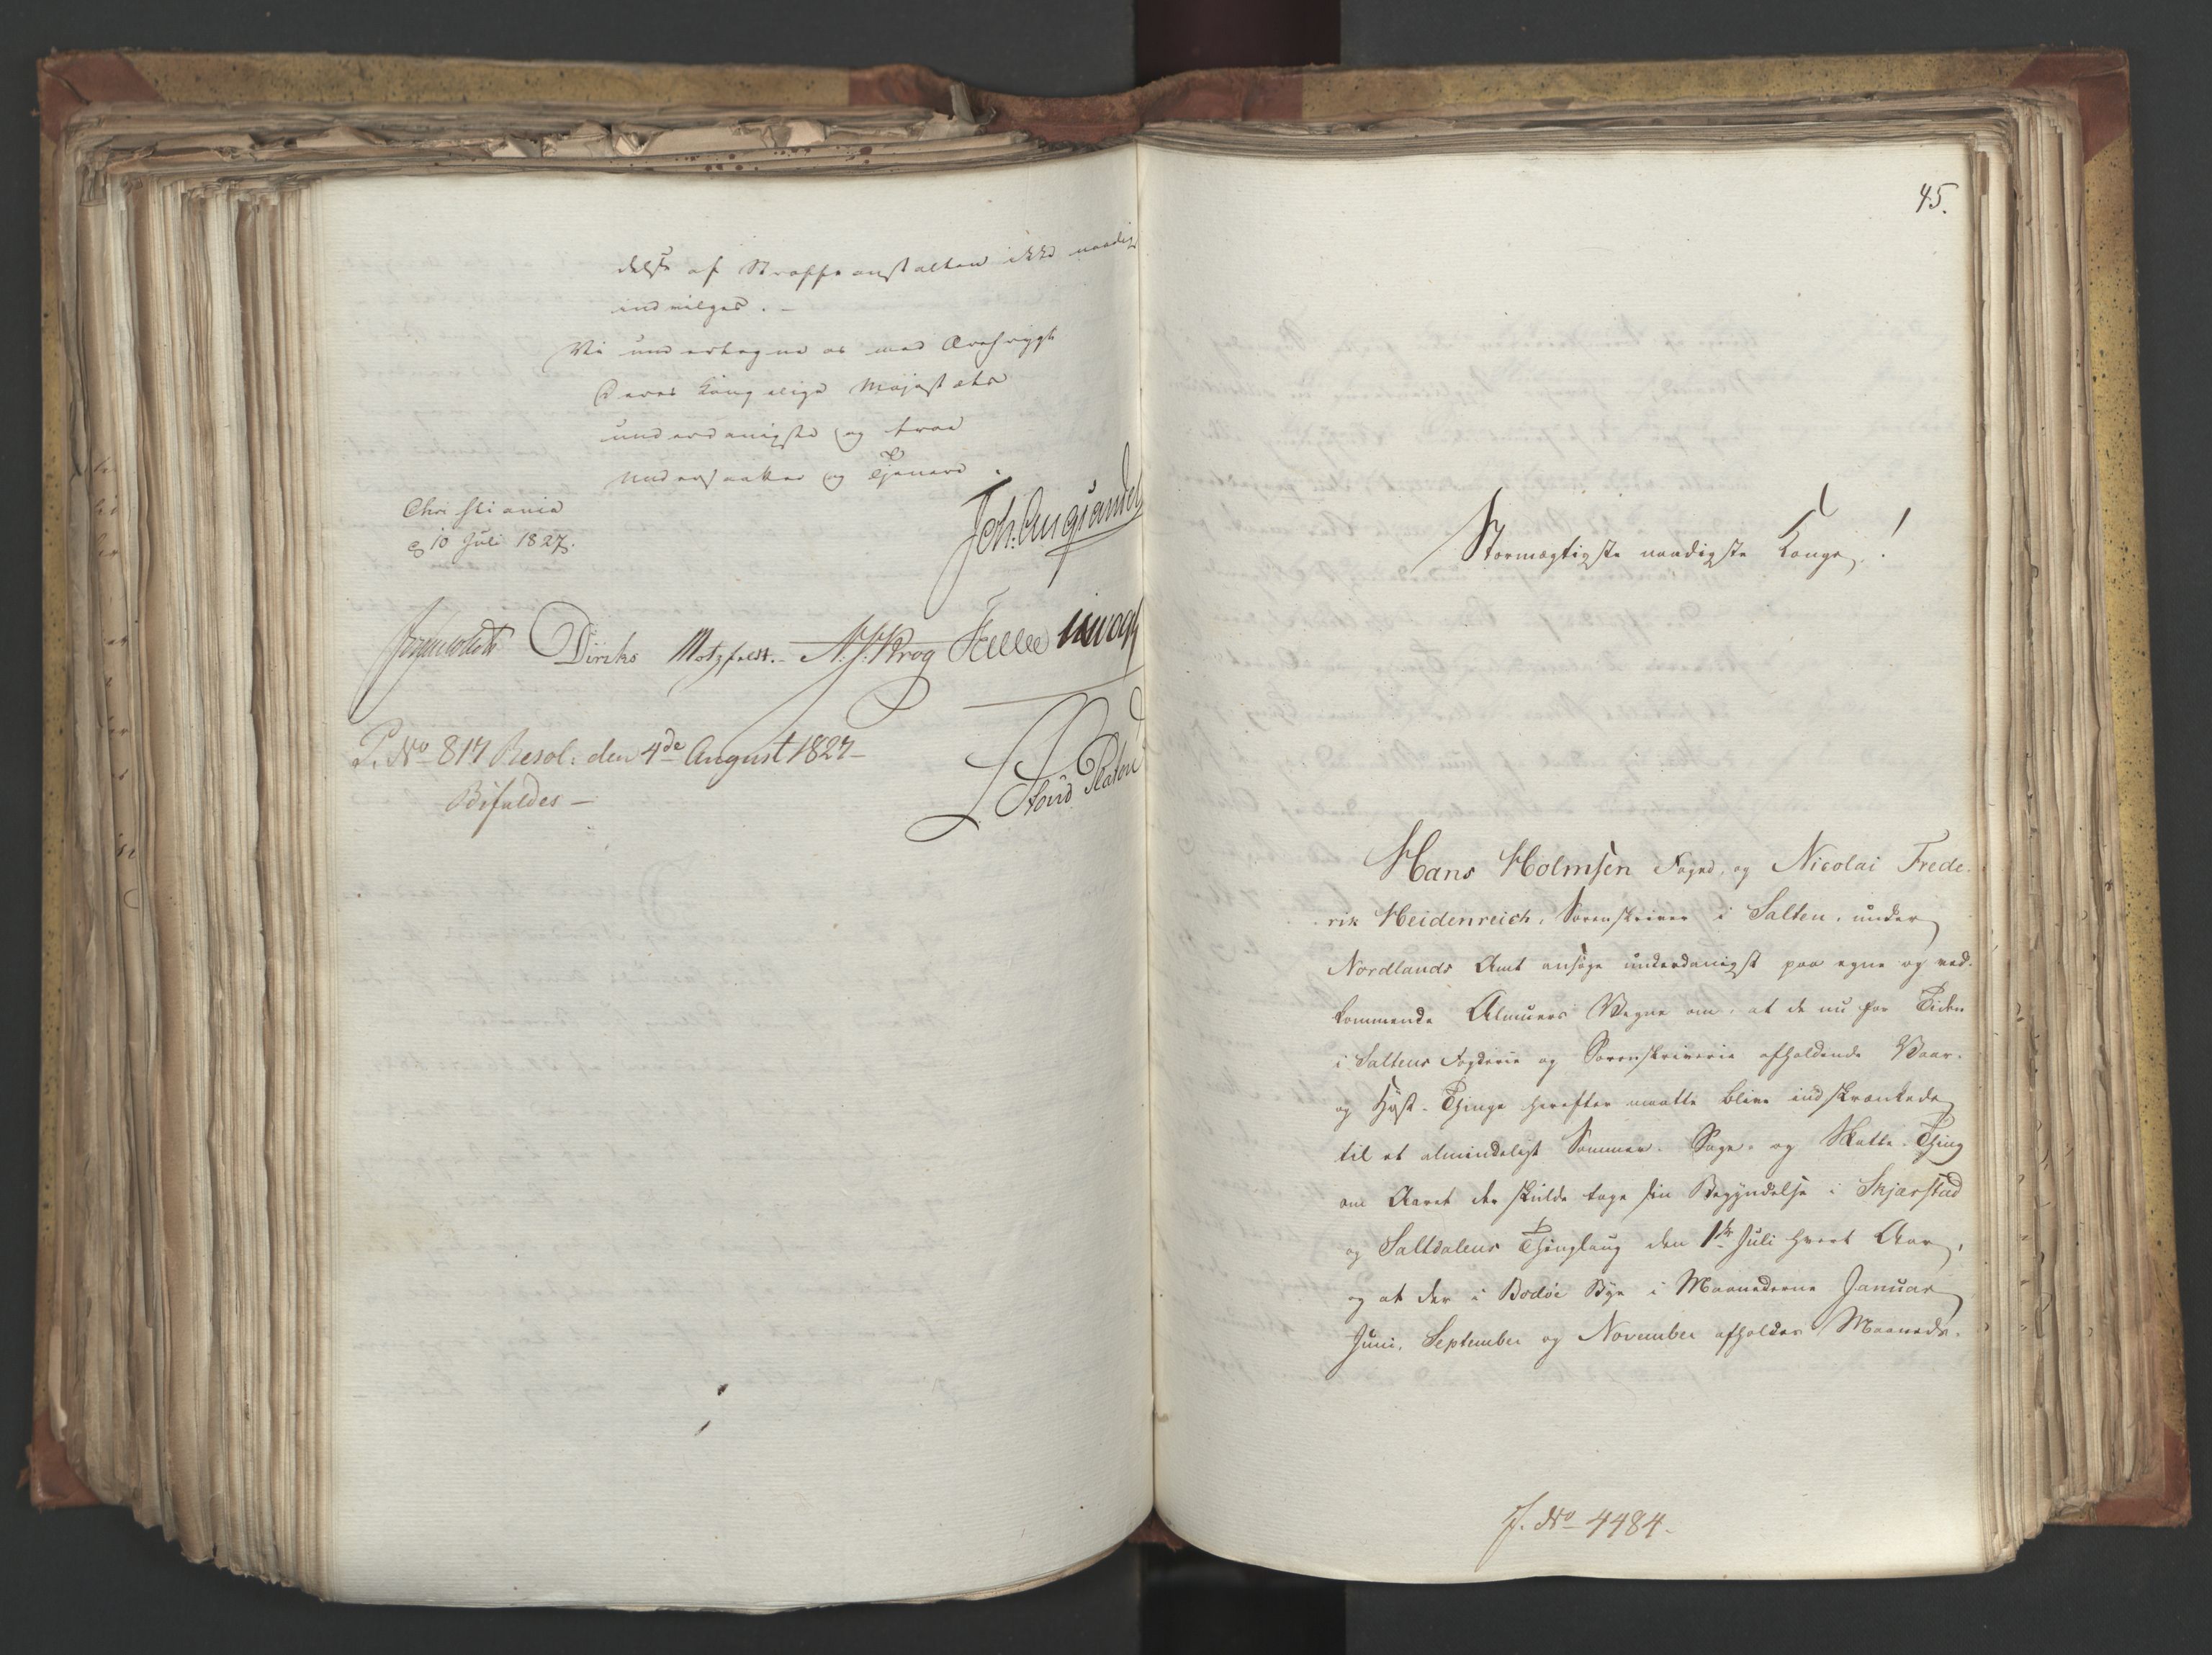 delse af Straffeanstalten ikke naadigst
indvilges. -
Vi undertegne os med Ærefrygt
Deres Kongelige Majestæts
underdanigste og troe
Undersaatter og Tjenere.
Christiania
d 10 Juli 1827.
Joh: Aug: Sandels
Diriks Motzfeldt. N. J. Krog Fasting
P. No 817 Resol: den 4de August 1827 -
Bifaldes -
45.
Stormægtigste naadigste Konge!
Hans Holmsen Foged, og Nicolai Frede-
rik Heidenreich, Sorenskriver i Salten, under
Nordlands Amt ansøge underdanigst paa egne og ved-
kommende Almues Vegne om, at de nu for Tiden
i Saltens Fogderie og Sorenskriverie afholdende Vaar-
og Høst-Thinge herefter maatte blive indskrænkede
til et almindeligt Sommer- Sage- og Skatte-Thing
om Aaret der skulde tage sin Begyndelse i Skjærstad
og Saltdalens Thinglaug den 1ste Juli hvert Aar,
og at der i Bodøe Bye i Maanederne Januar
Juni, September og November afholdes Maaneds-
J. No 4484.